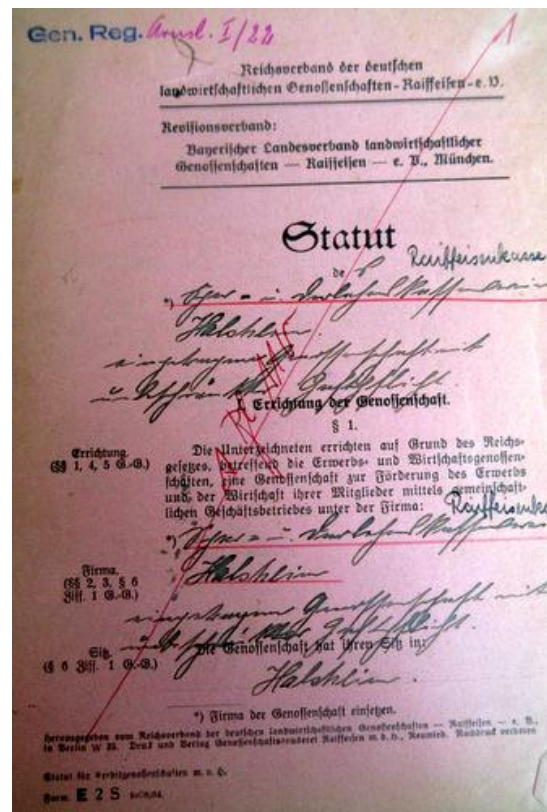 Gen. Reg. Arnst. I/22
Reichsverband der deutschen
landwirtschaftlichen Genossenschaften-Raiffeisen-e. V.
Revisionsverband:
Bayerischer Landesverband landwirtschaftlicher
Genossenschaften — Raiffeisen — e. V., München.
Statut
de s Raiffeisenkasse
*) Spar- u. Darlehenskassenverein
Halsheim
eingetragene Genossenschaft mit
unbeschränkter Haftpflicht.
I. Errichtung der Genossenschaft.
§ 1.
Errichtung.
(§§ 1, 4, 5 G.-G.)
Die Unterzeichneten errichten auf Grund des Reichs-
gesetzes, betreffend die Erwerbs- und Wirtschaftsgenossen-
schaften, eine Genossenschaft zur Förderung des Erwerbs
und der Wirtschaft ihrer Mitglieder mittels gemeinschaft-
lichen Geschäftsbetriebes unter der Firma:
*) Spar- u. Darlehenskassenverein
Firma.
(§§ 2, 3, § 6
Ziff. 1 G.-G.)
Halsheim
eingetragene Genossenschaft mit
unbeschränkter Haftpflicht.
Sitz.
(§ 6 Ziff. 1 G.-G.)
Die Genossenschaft hat ihren Sitz in:
Halsheim.
*) Firma der Genossenschaft einsetzen.
Herausgegeben vom Reichsverband der deutschen landwirtschaftlichen Genossenschaften — Raiffeisen — e. V.,
in Berlin W 35. Druck und Verlag Genossenschaftsdruckerei Raiffeisen m. b. H., Neuwied. Nachdruck verboten
Statut für Kreditgenossenschaften m. u. H.
Form. E 2 S